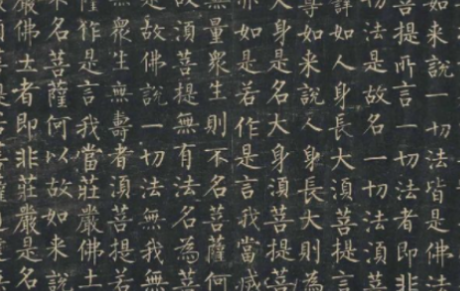 如來說一切法皆是佛法
菩提所言一切法者即非
切法是故名一切法湏菩
譬如人身長大湏菩提言
尊如來說人身長大則為
身是名大身湏菩提菩
亦如是若作是言我當滅
無量衆生則不名菩薩何
故湏菩提無有法名為菩
是故佛說一切法無我無
衆生無壽者湏菩提若
薩作是言我當莊嚴佛土
不名菩薩何以故如來說
嚴佛土者即非莊嚴是名